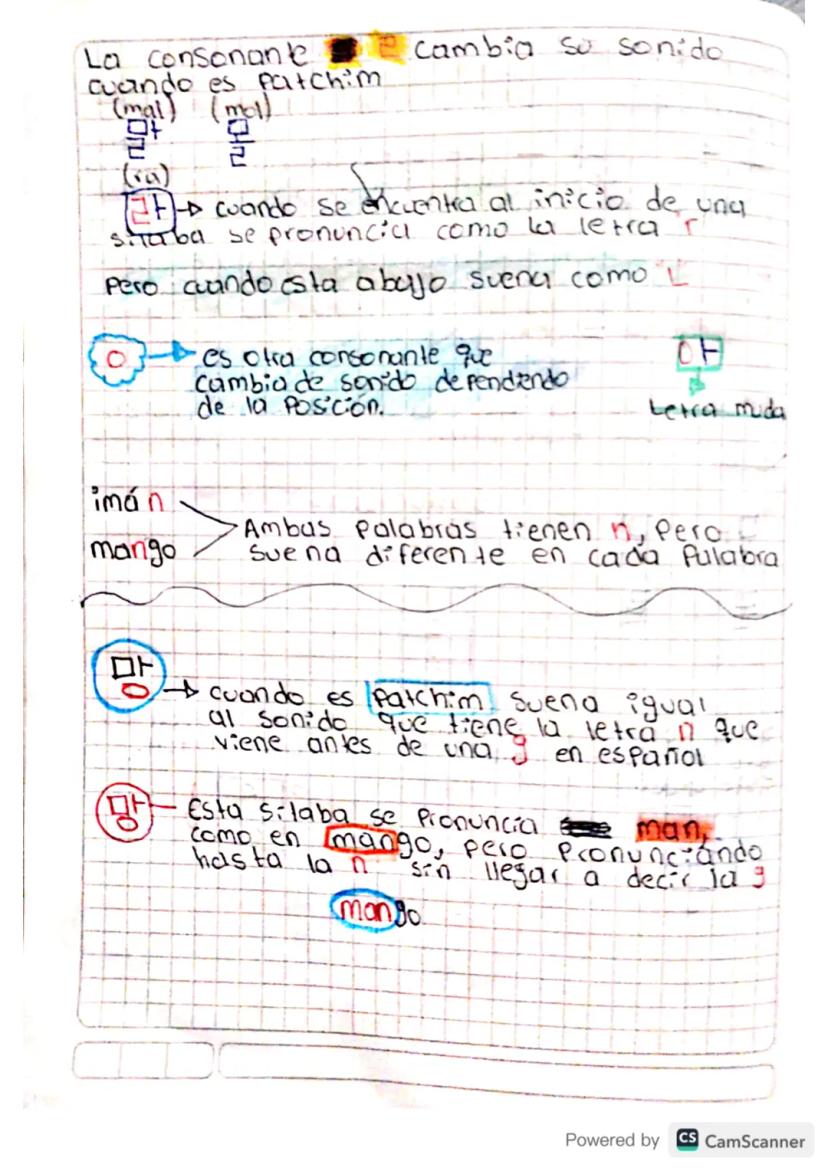 La consonante ㄹ cambia su sonido
cuando es patchim
(mal) (mol)
말 몰
(ra)
라 → cuando se encuentra al inicio de una
sílaba se pronuncia como la letra r
Pero cuando esta abajo suena como L
ㅇ → es otra consonante que
cambia de sonido dependiendo
de la posición.
아
Letra muda
imán
mango
Ambas palabras tienen n, pero
suena diferente en cada palabra
망
→ cuando es patchim suena igual
al sonido que tiene la letra n que
viene antes de una g en español
망 Esta sílaba se pronuncia man,
como en mango, pero pronunciando
hasta la n sin llegar a decir la g
mango
Powered by CS CamScanner